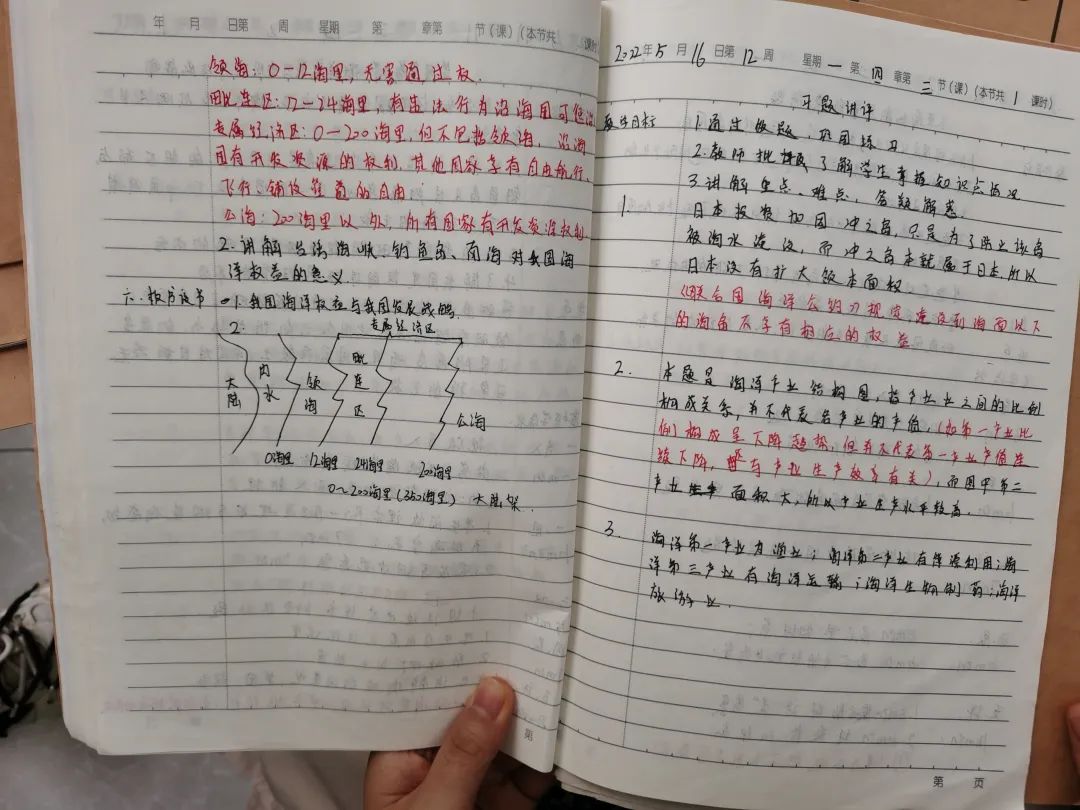 年 月 日第 周 星期 第 章第 节(课)(本节共 课时)
领海:0-12海里,无害通过权.
毗连区:12-24海里,有违法行为沿海国可
专属经济区:0-200海里,但不包括领海,沿海
国有开发资源的权利,其他国家享有自由航行、
飞行铺设管道的自由
公海:200海里以外,所有国家有开发资源权利
2.讲解台湾海峡、钓鱼岛、南海对我国海
洋权益的意义
六.板书设节 一.1.我国海洋权益与我国发展战略.
2.
专属经济区
大陆 内水 领海 毗连区 公海
0海里 12海里 24海里 200海里
0~200海里(350海里) 大陆架.
2022年5月16日第12周 星期一 第四章第三节(课)(本节共1课时)
习题讲评
教学目标 1.通过做题,巩固练习
2.教师批 了解学生掌握知识点情况
3.讲解重点、难点,答疑解惑.
1. 日本投资加固冲之鸟,只是为了防止该岛
被海水淹没,而冲之鸟本就属于日本所以
日本没有扩大领本面权
《联合国海洋公约》规定淹没到海面以下
的海岛不享有相应的权益
2. 本题是海洋产业结构图,指产业之间的比例
构成关系,并不代表各产业的产值,(如第一产业比
例)构成呈下降趋势,但并不代表第一产业产值连
续下降,有产业生产效率有关),而图中第二
产业 面积大,所以产业生产水平较高.
3. 海洋第一产业为渔业;海洋第二产业有能源利用;海
洋第三产业有海洋运输;海洋生物制药;海洋
旅游业.
第
第 页